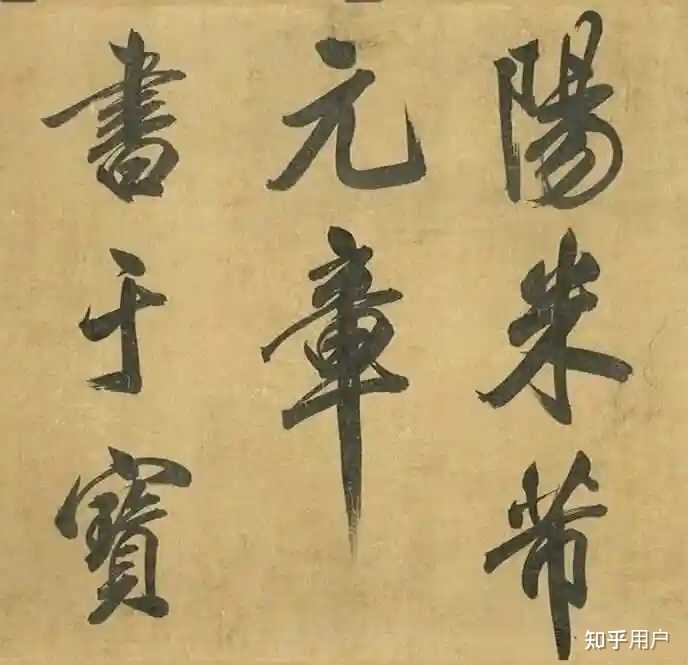 陽米芾
元章
書于寶
知乎用户